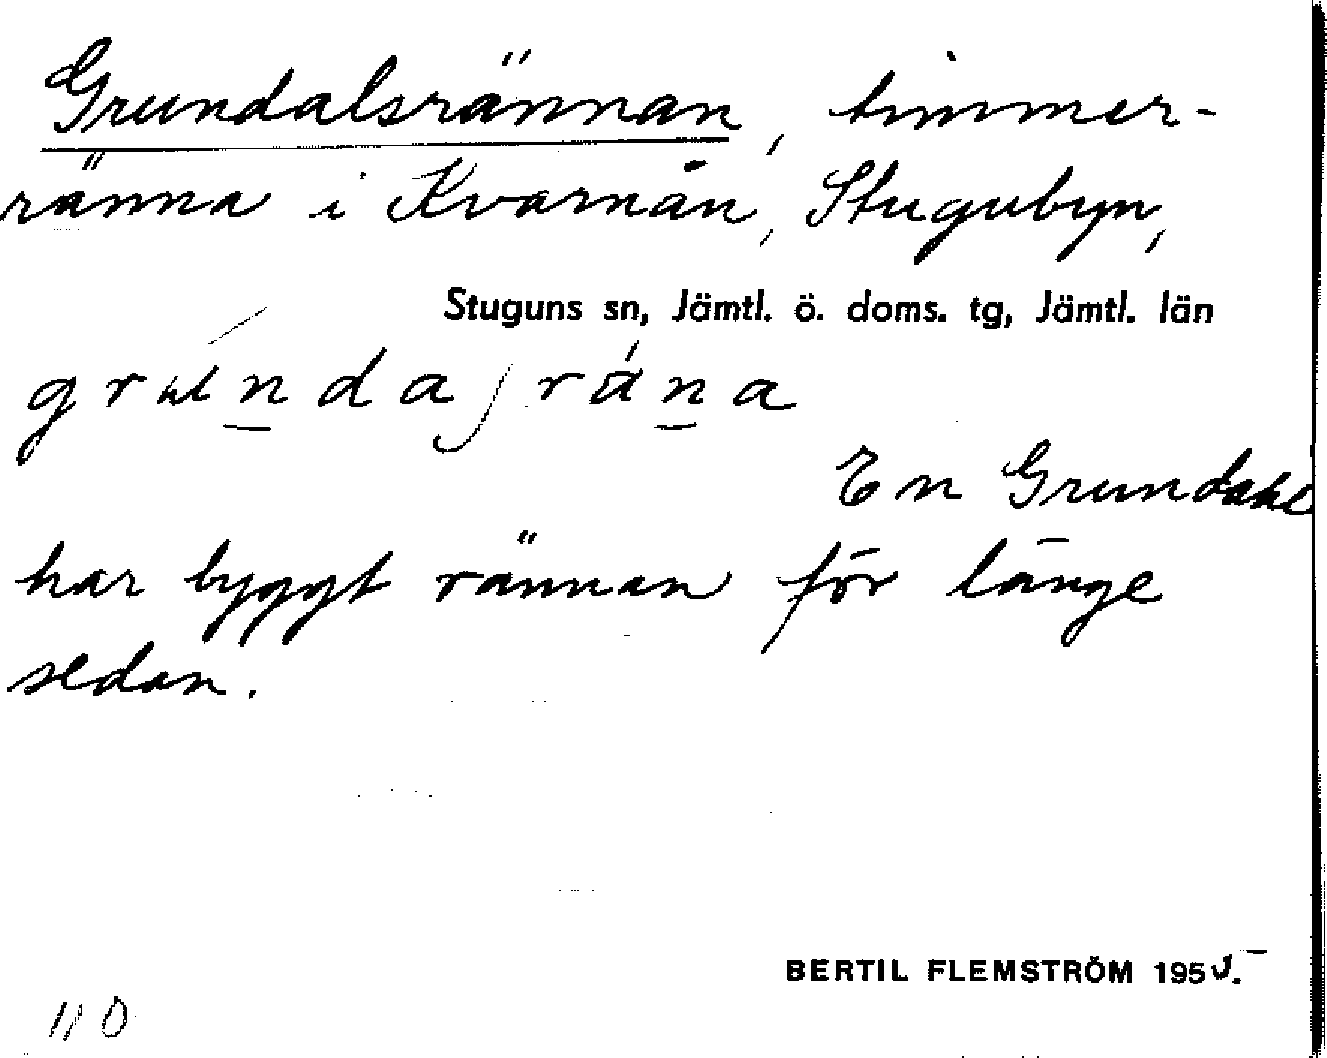 Grundalsrännan, timmer-
ränna i Kvarnån, Stugubyn,
Stuguns sn, Jämtl. ö. doms. tg, Jämtl. län
En Grundahl
har byggt rännan för länge
sedan.
BERTIL FLEMSTRÖM 195
110